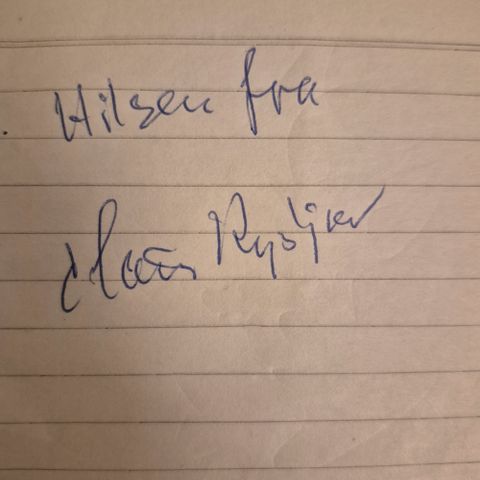 Hilsen fra
Claus Ryskjær